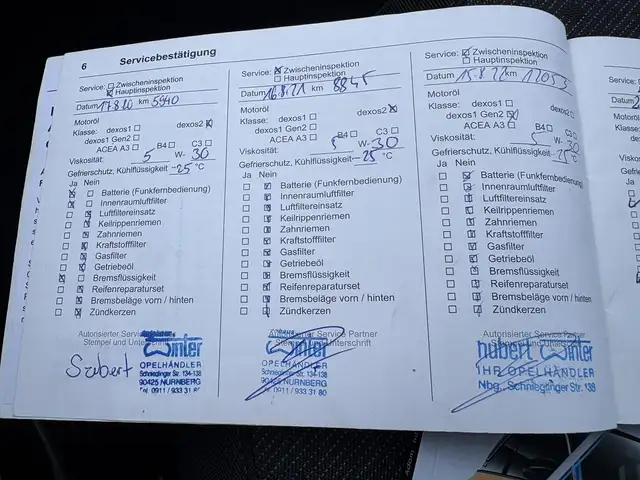 6 Servicebestätigung
Service: Zwischeninspektion
Hauptinspektion
Datum 17.8.20 km 5940
Motoröl
Klasse: dexos1 dexos2
dexos1 Gen2
ACEA A3 B4 C3
Viskosität: 5 W- 30
Gefrierschutz, Kühlflüssigkeit -25 °C
Ja Nein
Batterie (Funkfernbedienung)
Innenraumluftfilter
Luftfiltereinsatz
Keilrippenriemen
Zahnriemen
Kraftstofffilter
Gasfilter
Getriebeöl
Bremsflüssigkeit
Reifenreparaturset
Bremsbeläge vorn / hinten
Zündkerzen
Autorisierter Service
Stempel und Unter
Winter
OPELHÄNDLER
Schnieglinger Str. 134-138
90425 NÜRNBERG
Tel. 0911 / 933 31 80
Service: Zwischeninspektion
Hauptinspektion
Datum 16.8.21 km 8845
Motoröl
Klasse: dexos1 dexos2
dexos1 Gen2
ACEA A3 B4 C3
Viskosität: 5 W- 30
Gefrierschutz, Kühlflüssigkeit -25 °C
Ja Nein
Batterie (Funkfernbedienung)
Innenraumluftfilter
Luftfiltereinsatz
Keilrippenriemen
Zahnriemen
Kraftstofffilter
Gasfilter
Getriebeöl
Bremsflüssigkeit
Reifenreparaturset
Bremsbeläge vorn / hinten
Zündkerzen
Autorisierter Service Partner
Stempel und Unterschrift
Winter
OPELHÄNDLER
Schnieglinger Str. 134-138
90425 NÜRNBERG
Tel. 0911 / 933 31 80
Service: Zwischeninspektion
Hauptinspektion
Datum 15.8.22 km 12053
Motoröl
Klasse: dexos1 dexos2
dexos1 Gen2
ACEA A3 B4 C3
Viskosität: 5 W- 30
Gefrierschutz, Kühlflüssigkeit -25 °C
Ja Nein
Batterie (Funkfernbedienung)
Innenraumluftfilter
Luftfiltereinsatz
Keilrippenriemen
Zahnriemen
Kraftstofffilter
Gasfilter
Getriebeöl
Bremsflüssigkeit
Reifenreparaturset
Bremsbeläge vorn / hinten
Zündkerzen
Autorisierter Service Partner
hubert Winter
IHR OPELHÄNDLER
Nbg., Schnieglinger Str. 138